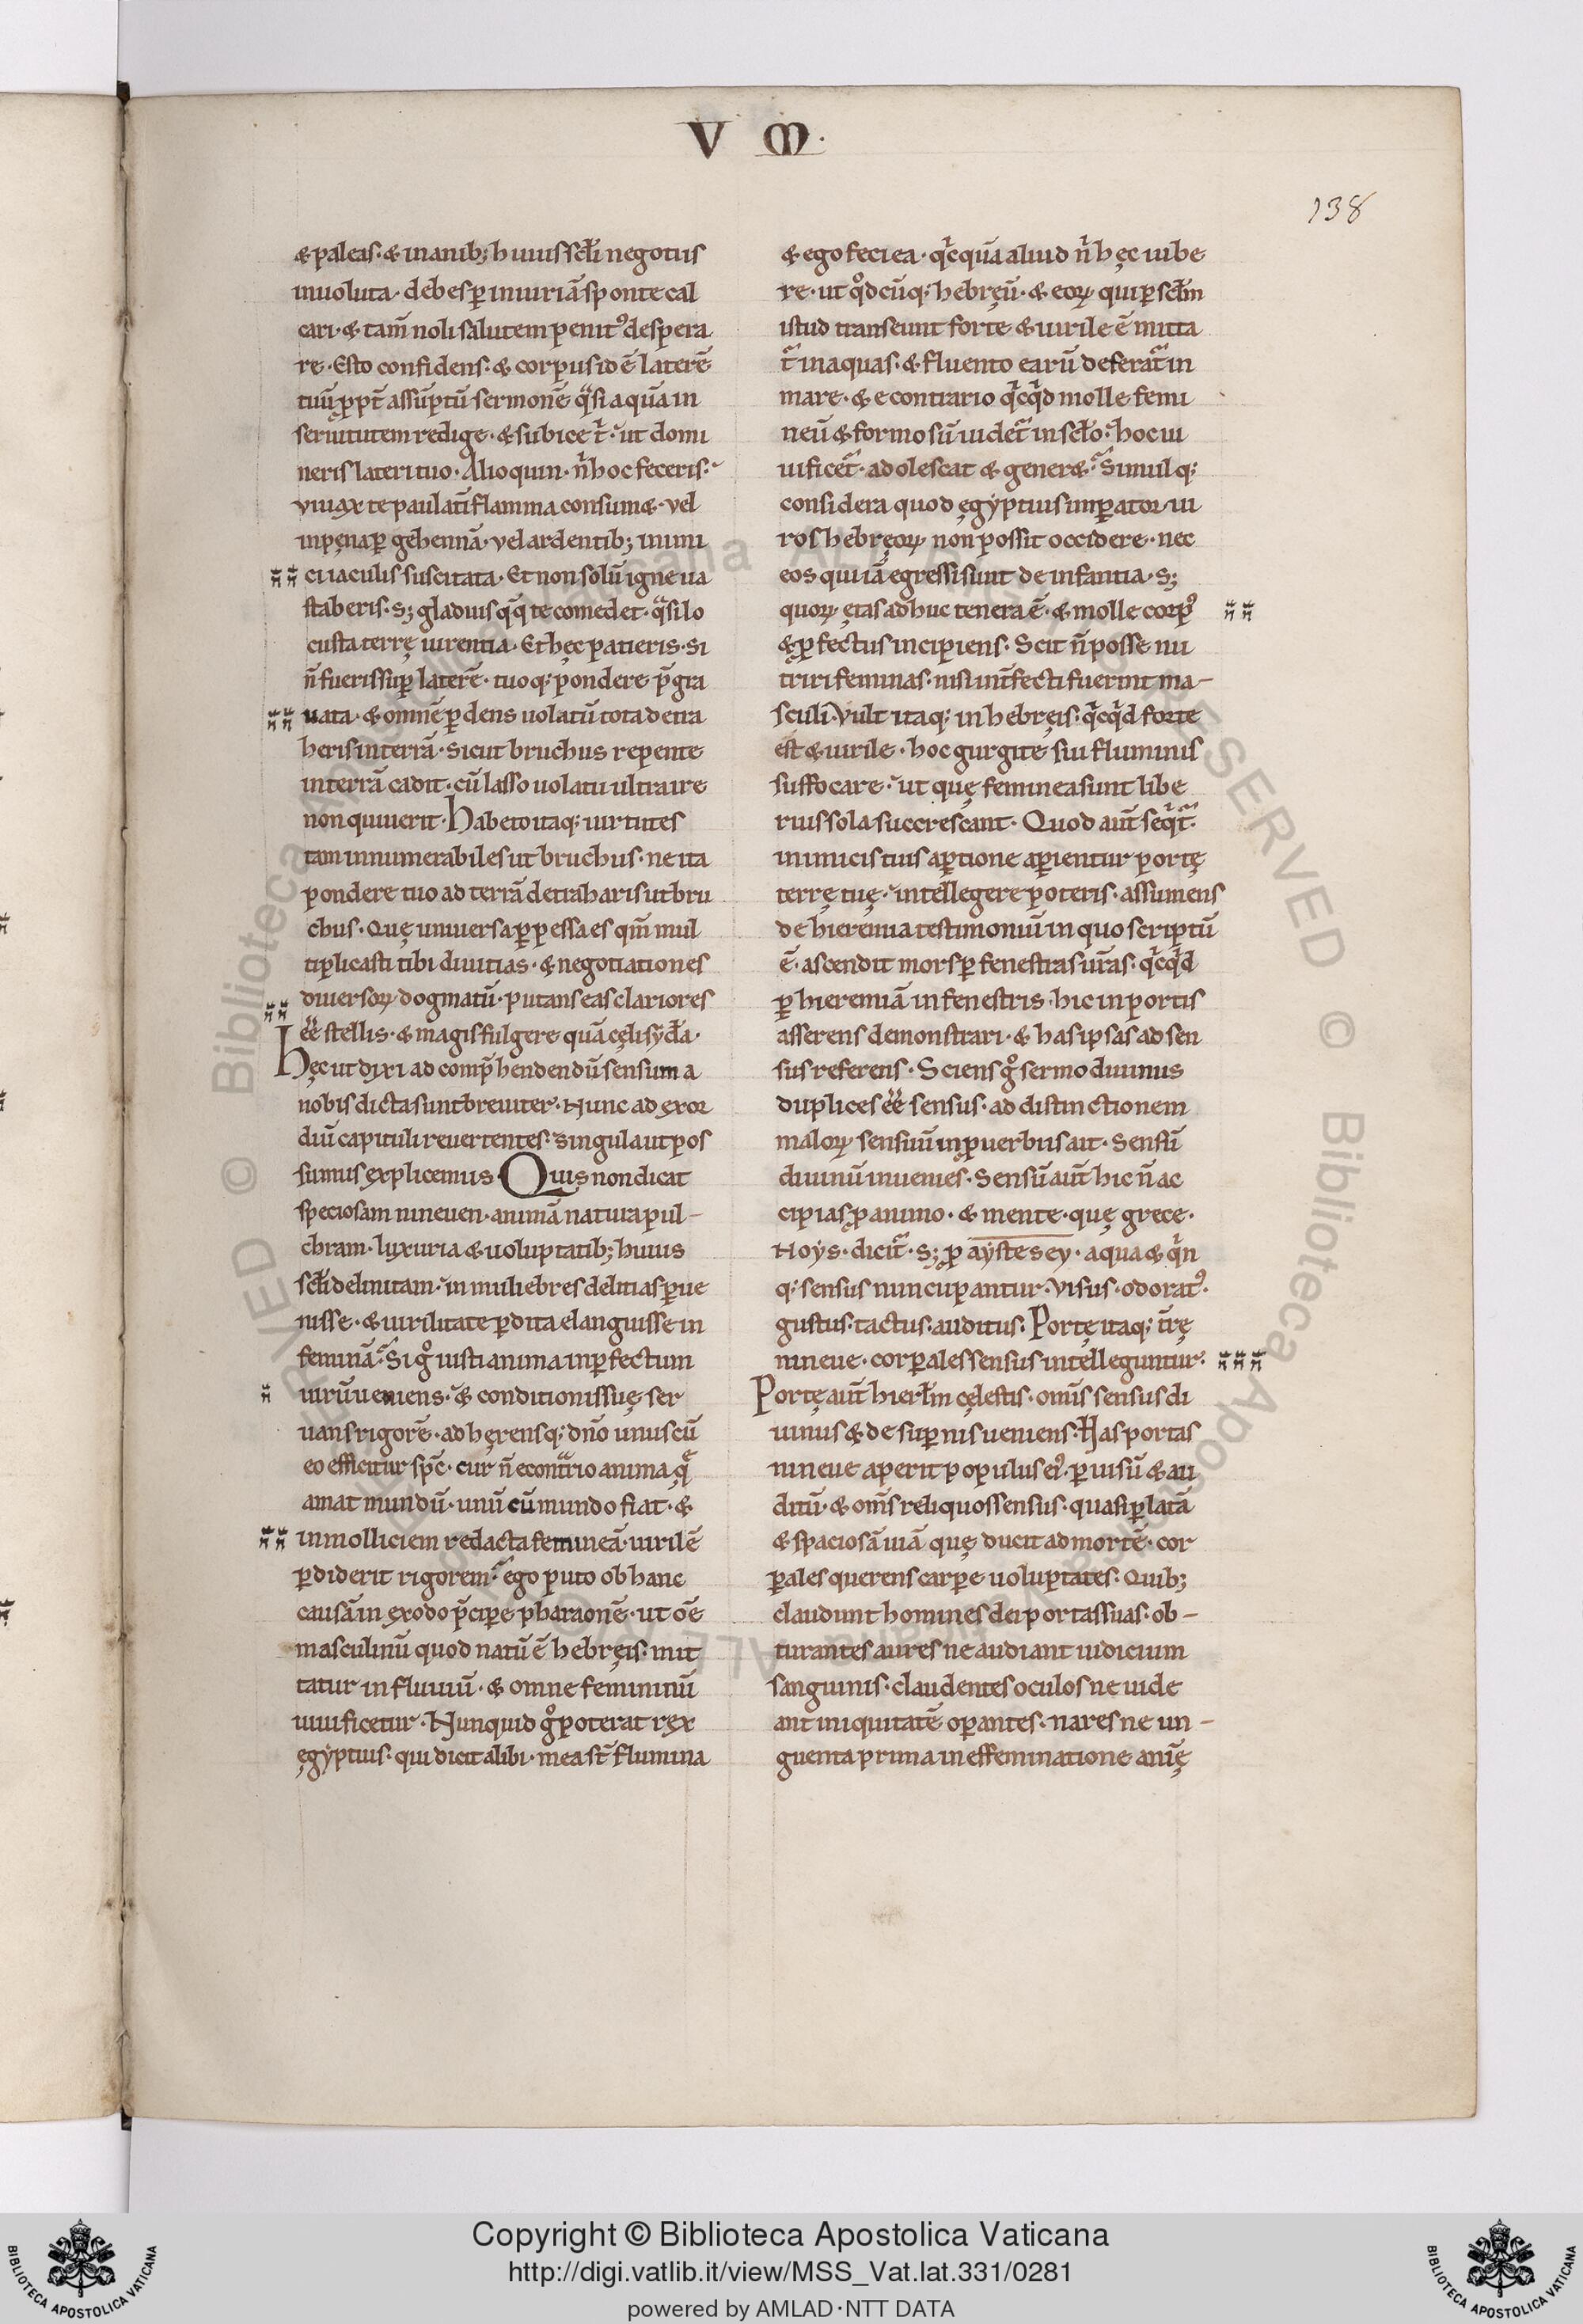 V M·
138
& paleas· & inanib; huius scłi negotiis
inuoluta· debes p̱ iniuriā sponte cal
cari· & tam̄ noli salutem penit᾿ despera
re· Esto confidens· & corpus id ē laterē
tuū ꝓpt̄ assūptū sermonē qͣsi aquā in
seruitutem redige· & subice t͛· ut domi
neris lateri tuo· Alioquin· n͛ hoc feceris·
viuax te paulatī flamma consum&· vel
in pęna p̱ gehennā· vel ardentib; inimi
ci iaculis suscitata· Et non solū igne ua
staberis· s; gladius qͣq te comedet· qͣsi lo
custa terrę uirentia· Et hęc patieris· si
n̄ fueris sup̱ laterē· tuoq; pondere p̄gra
uata· & omnē p̱dens uolatū tota detra
heris in terrā· sicut bruchus repente
in terrā cadit· cū lasso uolatu ultra ire
non quiuerit· Habeto itaq; uirtutes
tam innumerabiles ut bruchus· ne ita
pondere tuo ad terrā detraharis ut bru
chus· Quę uniuersa p̱pessa es qm̄ mul
tiplicasti tibi diuitias· & negotiationes
diuersoꝝ dogmatū· putans eas clariores
ēē stellis· & magis fulgere quā cęli syd̄a·
Hęc ut dixi ad comp̄hendendū sensum a
nobis dicta sunt breuiter· Nunc ad exor
diū capituli reuertentes· singula ut pos
sumus explicemus· Quis non dicat
speciosam nineuen· animā natura pul-
chram· luxuria & uoluptatib; huius
scłi delinitam· in muliebres delitias p̱ue
nisse· & uirilitate p̱dita elanguisse in
feminā· Si gͦ iusti anima in p̱fectum
uirū ueniens· & conditionis suę ser
uans rigorē· adhęrensq; dn̄o unus cū
eo efficitur sp̄c· cur n̄ econtͣrio anima q̄
amat mundū· unū cū mundo fiat· &
in molliciem redacta femineā· uirilē
p̱diderit rigorem· ego puto ob hanc
causā in exodo p̄cip̱e pharaonē· ut om̄e
masculinū quod natū ē hebręis· mit
tatur in fluuiū· & omne femininū
uiuificetur· Nunquid gͦ poterat rex
ęgyptius· qui dicit alibi· mea st̄ flumina
& ego feci ea· qͥcquā aliud n͛ hęc iube
re· ut qͦdcūq; hebręū· & eoꝝ qui p̱ scłm
istud transeunt forte & uirile ē mitta
t᷑ in aquas· & fluento earū deferat᷑ in
mare· & e contrario qͥcqͥd molle femi
neū & formosū uidet᷑ in scło· hoc ui
uificet᷑· adolescat & gener&· Simulq;
considera quod ęgyptius imp̱ator ui
ros hebręoꝝ non possit occidere· nec
eos qui iā egressi sunt de infantia· s;
quoꝝ ętas adhuc tenera ē· & molle corp᾿
& ꝓfectus incipiens· Scit n̄ posse nu
triri feminas· nisi int̄fecti fuerint ma-
sculi· Vult itaq; in hebręis· qͥcqͥd forte
est & uirile· hoc gurgite sui fluminis
suffocare· ut quę feminea sunt libe
rius sola succrescant· Quod aut̄ seqͥt᷑·
inimicis tuis ap̱tione ap̱ientur portę
terrę tuę· intellegere poteris· assumens
de hieremia testimoniū in quo scriptū
ē· ascendit mors p̱ fenestras ur̄as· qͥcqͥd
p̱ hieremiā in fenestris· hic in portis
asserens demonstrari· & has ipsas ad sen
sus referens· Sciens gͦ sermo diuinus
duplices ēē sensus· ad distinctionem
maloꝝ sensuū in ꝓuerbiis ait· Sensū
diuinū inuenies· Sensū aut̄ hic n̄ ac
cipias ꝓ animo· & mente· quę grece·
Noys· dicit᷑· s; ꝓ aystesey· a qua & qͥn
q; sensus nuncupantur· Visus· odorat᾿·
gustus· tactus· auditus· Portę itaq; tr̄ę
nineue· corp̱ales sensus intelleguntur·
Portę aut̄ hierłm cęlestis· omīs sensus di
uinus & de sup̱nis ueniens· Has portas
nineue aperit populus ei᾿· p̱ uisū & au
ditū· & om̄s reliquos sensus· quasi p̱ latā
& spaciosā uiā quę ducit ad mortē· cor
p̱ales querens carp̱e uoluptates· Quib;
claudunt homines dei portas suas· ob-
turantes aures ne audiant iudicium
sanguinis· claudentes oculos ne uide
ant iniquitatē op̱antes· nares ne un-
guenta prima in effeminatione anīę
© Biblioteca Apostolica Vaticana ALL RIGHTS RESERVED
Copyright © Biblioteca Apostolica Vaticana
http://digi.vatlib.it/view/MSS_Vat.lat.331/0281
powered by AMLAD·NTT DATA
BIBLIOTECA APOSTOLICA VATICANA
BIBLIOTECA APOSTOLICA VATICANA